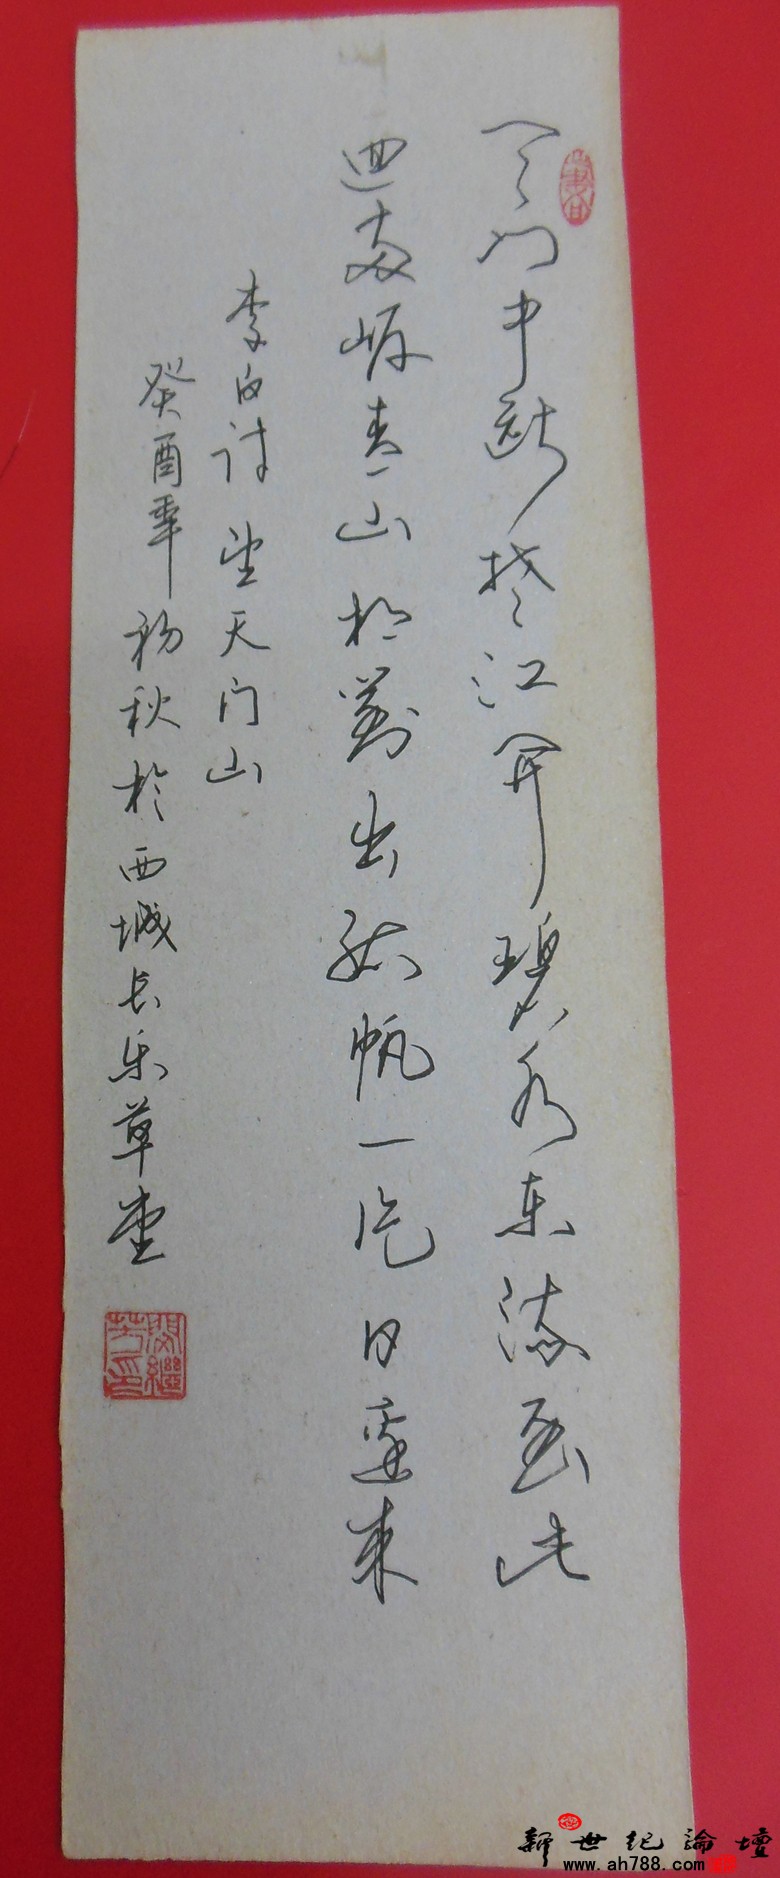 天门中断楚江开碧水东流至此
迴两岸青山相對出孤帆一片日邊来
李白诗望天门山
癸酉年初秋於西城长乐草堂
閔繼
芳印
新世纪論壇
www.ah788.com